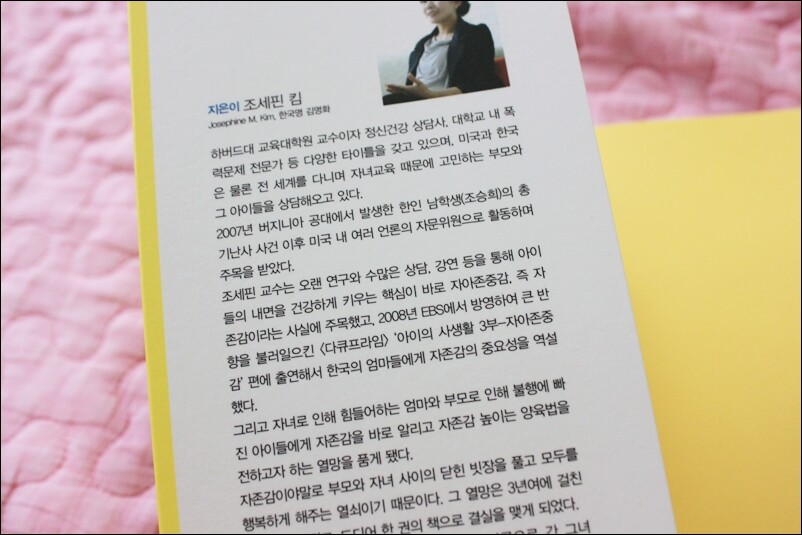 지은이 조세핀 킴
Josephine M. Kim, 한국명 김명화
하버드대 교육대학원 교수이자 정신건강 상담사, 대학교 내 폭
력문제 전문가 등 다양한 타이틀을 갖고 있으며, 미국과 한국
은 물론 전 세계를 다니며 자녀교육 때문에 고민하는 부모와
그 아이들을 상담해오고 있다.
2007년 버지니아 공대에서 발생한 한인 남학생(조승희)의 총
기난사 사건 이후 미국 내 여러 언론의 자문위원으로 활동하며
주목을 받았다.
조세핀 교수는 오랜 연구와 수많은 상담, 강연 등을 통해 아이
들의 내면을 건강하게 키우는 핵심이 바로 자아존중감, 즉 자
존감이라는 사실에 주목했고, 2008년 EBS에서 방영하여 큰 반
향을 불러일으킨 〈다큐프라임〉 ‘아이의 사생활 3부-자아존중
감’ 편에 출연해서 한국의 엄마들에게 자존감의 중요성을 역설
했다.
그리고 자녀로 인해 힘들어하는 엄마와 부모로 인해 불행에 빠
진 아이들에게 자존감을 바로 알리고 자존감 높이는 양육법을
전하고자 하는 열망을 품게 됐다.
자존감이야말로 부모와 자녀 사이의 닫힌 빗장을 풀고 모두를
행복하게 해주는 열쇠이기 때문이다. 그 열망은 3년여에 걸친
드디어 한 권의 책으로 결실을 맺게 되었다.
그녀